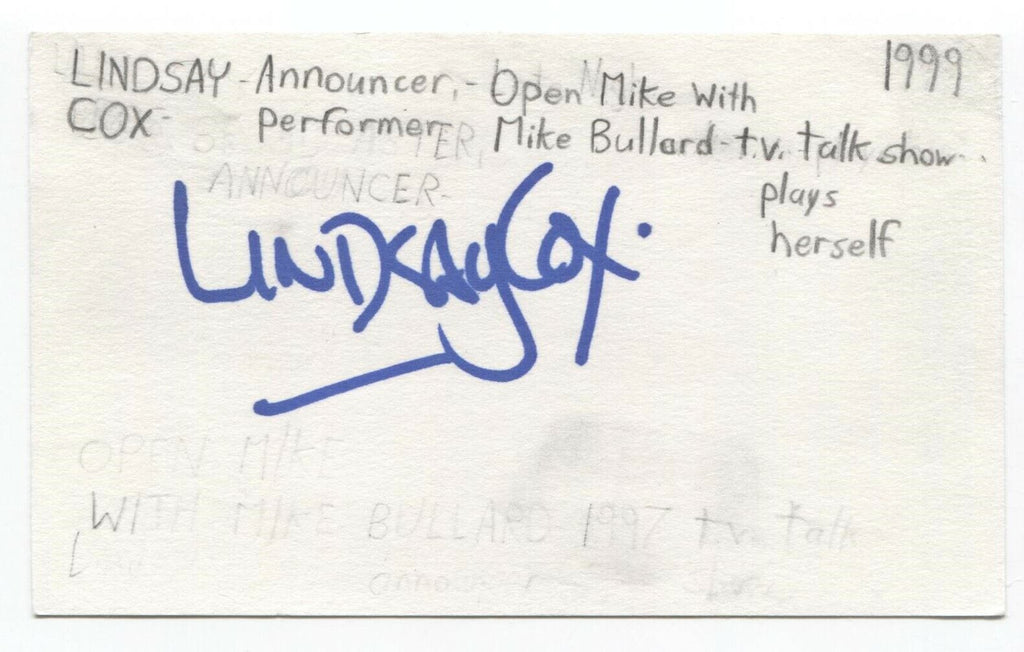 LINDSAY - Announcer, - Open Mike With 1999
COX - performer Mike Bullard - t.v. talk show
plays
herself
ANNOUNCER -
LINDSAY COX.
OPEN MIKE
WITH MIKE BULLARD 1997 t.v. talk
announcer show